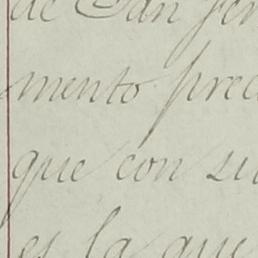 de San Fer
mento prec
que con su
es la que